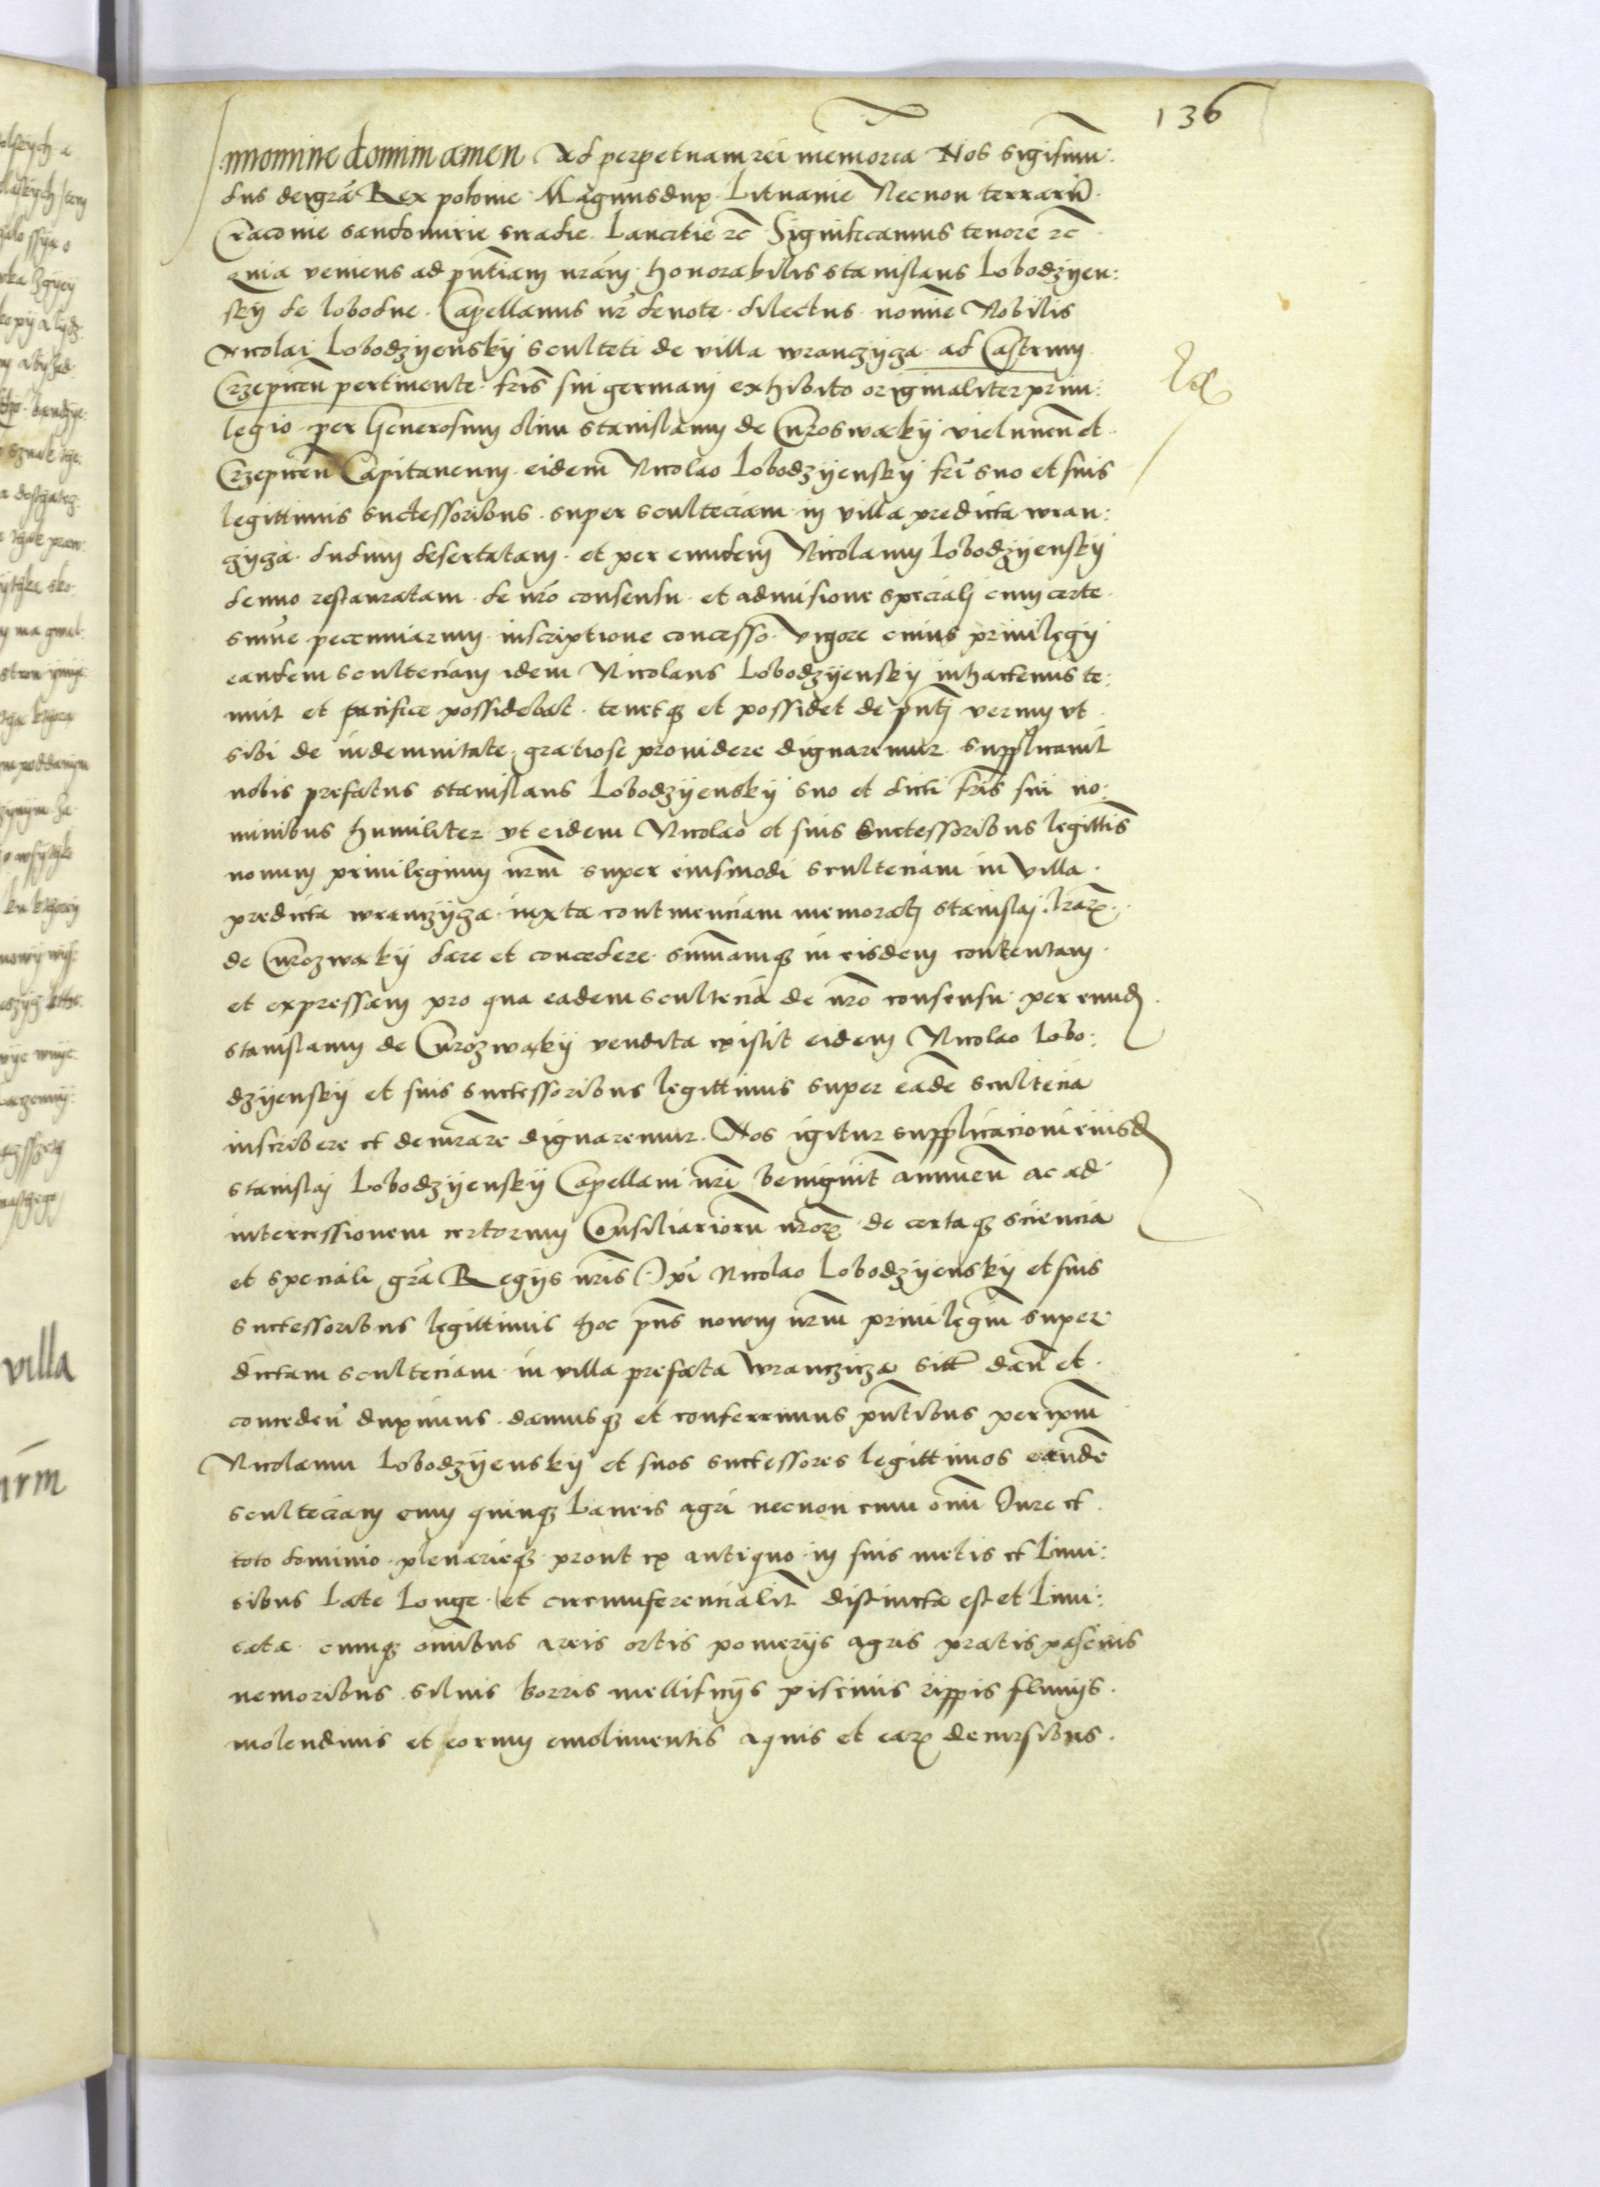 136
Innomine domini amen Ad perpetuam rei memoria Nos sigismu:
dus dei grā Rex polonie Magnusdux Lituanie Necnon terrarū
Cracouie sandomirie siradie Lancitie zc̄ Significamus tenore zc̄
quia veniens ad pn̄tiam nrām honorabilis stanislaus Lobodzyen:
sky de lobodne Capellanus nr̄ deuote dilectus nomīne Nobilis
Nicolai Lobodzyensky sculteti de villa wranczyga ad Castrum
Crzepicen̄ pertinente frīs sui germani exhibito originaliter priui:
legio per Generosum olim stanislaum de Curoswacky vielunen̄ et
Crzepicen̄ Capitaneum eidem Nicolao Lobodzyensky frī suo et suis
legittimis suctessoribus super sculteciam in villa predicta wran:
gyga dudum desertatam et per eundem Nicolaum Lobodzyensky
denuo restauratam de nrō consensu et admisione speciali cum certe
sum̄e pecenniarum inscriptione concesso vigore cuius priuilegij
eandem scultetiam idem Nicolaus Lobodzyensky inhactenus te:
nuit et pacifice possidebat tenetq3 et possidet de pn̄tj verum vt
sibi de indemnitate gratiose prouidere dignaremur supplicauit
nobis prefatus stanislaus Lobodzyensky suo et dicti frīs sui no:
minibus humiliter vt eidem Nicolao et suis suctessoribus legittīs
nouum priuilegium nrm̄ super eiusmodi scultetiam in villa
predicta wranczyga iuxta continenciam memoratj stanislaj lrārꝫ
de Curozwaky dare et concedere sum̄amq3 in eisdem contentam
et expressam pro qua eadem scultecia de nrō consensu per eund
stanislaum de Curozwaky vendita existit eidem Nicolao Lobo:
dzyensky et suis suctessoribus legittimis super eadē scultecia
inscribere et demrāre dignaremur Nos igitur supplicacioni eiusd
stanislaj Lobodzyensky Capellani nrī benignīt annuen̄ ac ad
intercessionem certorum Consiliariorū nrōrꝫ de certaq3 sciencia
et speciali grā Regijs nrīs pī Nicolao Lobodzyensky et suis
suctessoribus legittimis hoc pn̄s nowm nrm̄ priuilegiū super
dictam scultetiam in villa prefata wranczicza sitt̄ dan̄ et
conceden̄ duximus damusq3 et conferrimus pn̄tibus per ipm̄
Nicolaum Lobodzyensky et suos suctessores legittimos eandē
scultetiam cum quinq3 Laneis agri necnon cum om̄i Jure et
toto dominio plenarieq3 prout ex antiquo in suis metis et Limi:
tibus Late Longe et circumferencialit̄ distincta est et Limi:
tata cumq3 om̄ibus areis ortis pomerijs agris pratis pascuis
nemoribus siluis borris mellificijs piscinis rippis fluuijs
molendinis et eorum emolimentis aquis et earꝫ decursibus
villa
nrm